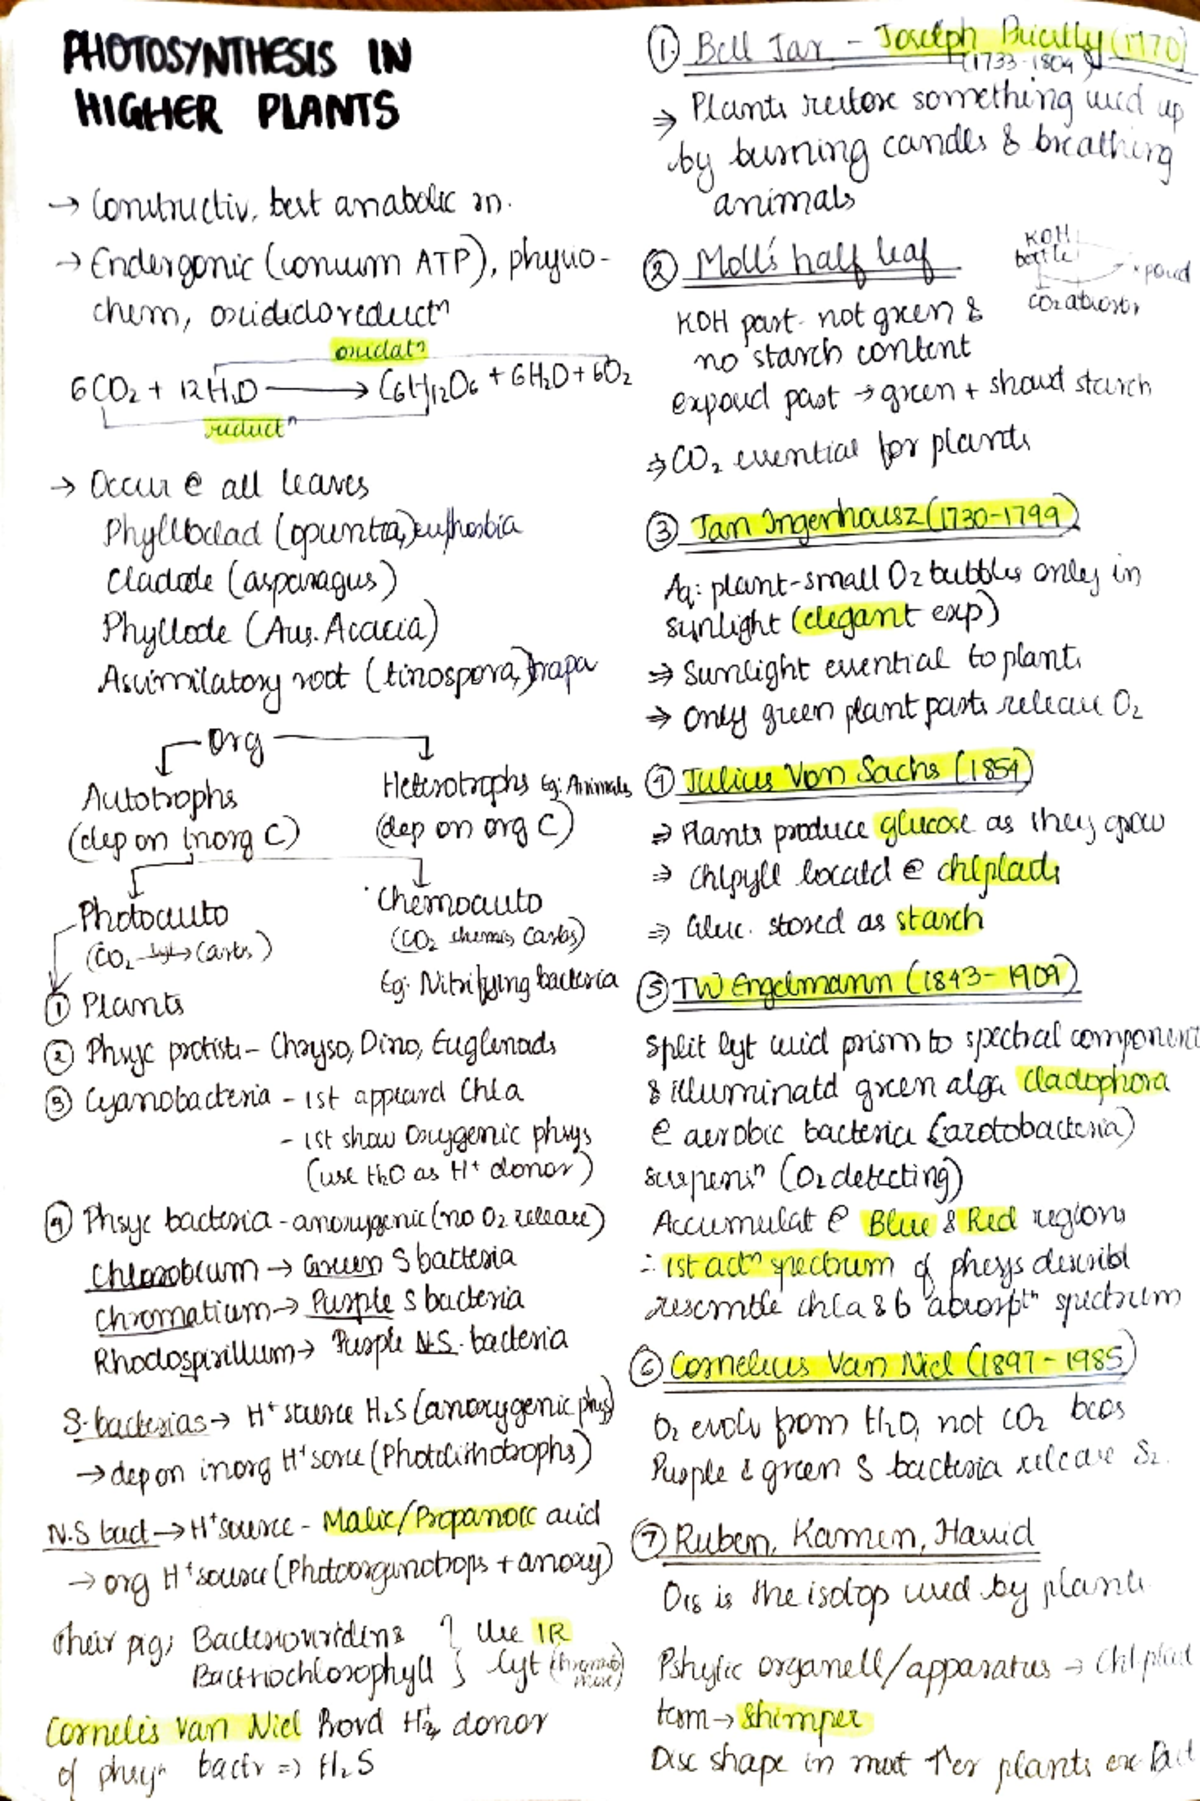 PHOTOSYNTHESIS IN
HIGHER PLANTS
→ Constructiv, best anabolic rn.
→ Endergonic (consum ATP), physio-
chem, oxididoreductⁿ
oxidatⁿ
6CO₂ + 12H₂O ⟶ C₆H₁₂O₆ + 6H₂O + 6O₂
reductⁿ
→ Occur @ all leaves
Phylloclad (opuntia,) euphorbia
Cladode (asparagus)
Phyllode (Aus. Acacia)
Assimilatory root (tinospora,) trapa
Org
Autotrophs
(dep on inorg C)
Heterotrophs Eg: Animals
(dep on org C)
Photoauto
(CO₂ lyt→ Carbs)
Chemoauto
(CO₂ chemis Carbs)
Eg: Nitrifying bacteria
① Plants
② Phsyc protists - Chryso, Dino, Euglenods
③ Cyanobacteria - 1st appeard Chla
- 1st show Oxygenic phsys
(use H₂O as H⁺ donor)
④ Phsyc bacteria - anoxygenic (no O₂ release)
Chlorobium → Green S bacteria
Chromatium → Purple S bacteria
Rhodospirillum → Purple N.S. bacteria
S-bacterias → H⁺ source H₂S (anoxygenic phsys)
→ dep on inorg H⁺ sorce (Photolithotrophs)
N.S bact → H⁺ source - Malic/Propanoic acid
→ org H⁺ source (Photoorganotrops + anoxy)
Their pig; Bacterioviridins } Use IR
Bactriochlorophyll } lyt
Cornelis Van Niel Provd H⁺ donor
of phsyⁿ bactr => H₂S
① Bell Jar - Joseph Priestly (1770)
(1733-1804)
⇒ Plants restore something used up
by burning candles & breathing
animals
② Moll's half leaf
KOH
bottle
exposd
CO₂ absorbs
KOH part not green &
no starch content
exposd part → green + showd starch
⇒ CO₂ essential for plants
③ Jan Ingenhousz (1730-1799)
Aq: plant-small O₂ bubbles only in
sunlight (elegant exp)
⇒ Sunlight essential to plants
⇒ Only green plant parts release O₂
④ Julius Von Sachs (1854)
⇒ Plants produce glucose as they grow
⇒ chlpyll locatd @ chlplasts
⇒ Gluc. stored as starch
⑤ TW Engelmann (1843-1909)
Split lyt usid prism to spectral component
& illuminatd green alga Cladophora
@ aerobic bacteria (azotobacteria)
suspensⁿ (O₂ detecting)
Accumulat @ Blue & Red regions
∴ 1st actⁿ spectrum of phsys describd
resemble chl a & b absorptⁿ spectrum
⑥ Cornelius Van Niel (1897-1985)
O₂ evolv from H₂O, not CO₂ bcos
Purple & green S bacteria release S₂.
⑦ Ruben, Kamen, Hassid
O₁₈ is the isotop used by plants
Pshytic organell/apparatus → Chlplast
term → Shimper
Disc shape in most ↑er plants